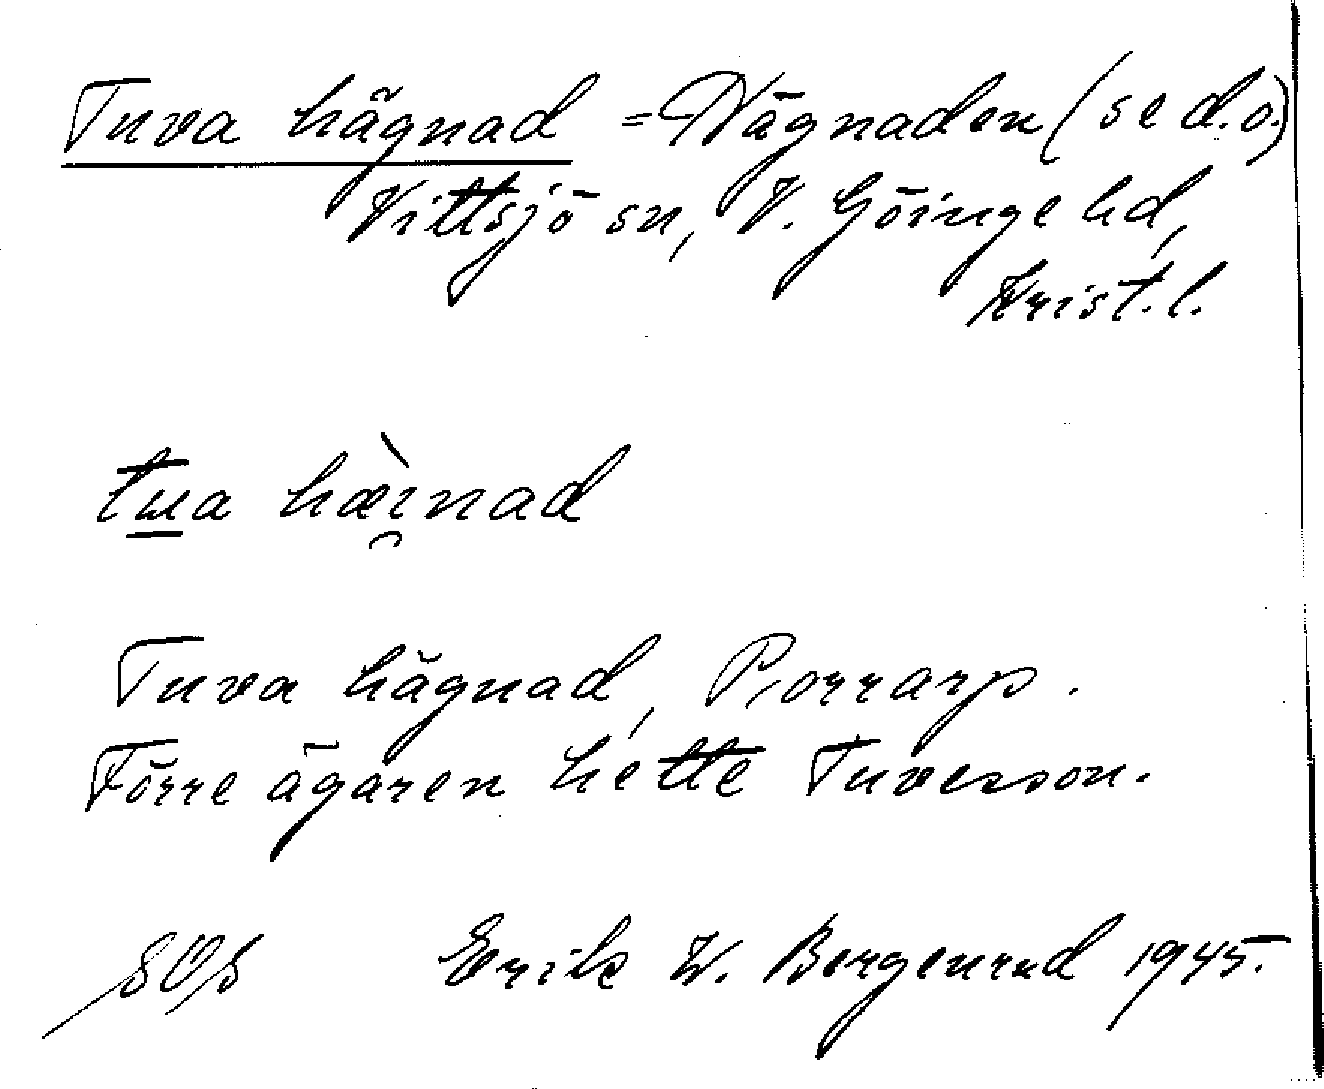 Tuva hägnad = Hägnaden (se d.o.)
Vittsjö sn, V. Göinge hd,
Krist. l.
tua hæ̀ınad
Tuva hägnad, Porrarp.
Förre ägaren hette Tuvesson.
Erik W. Bergenrud 1945.